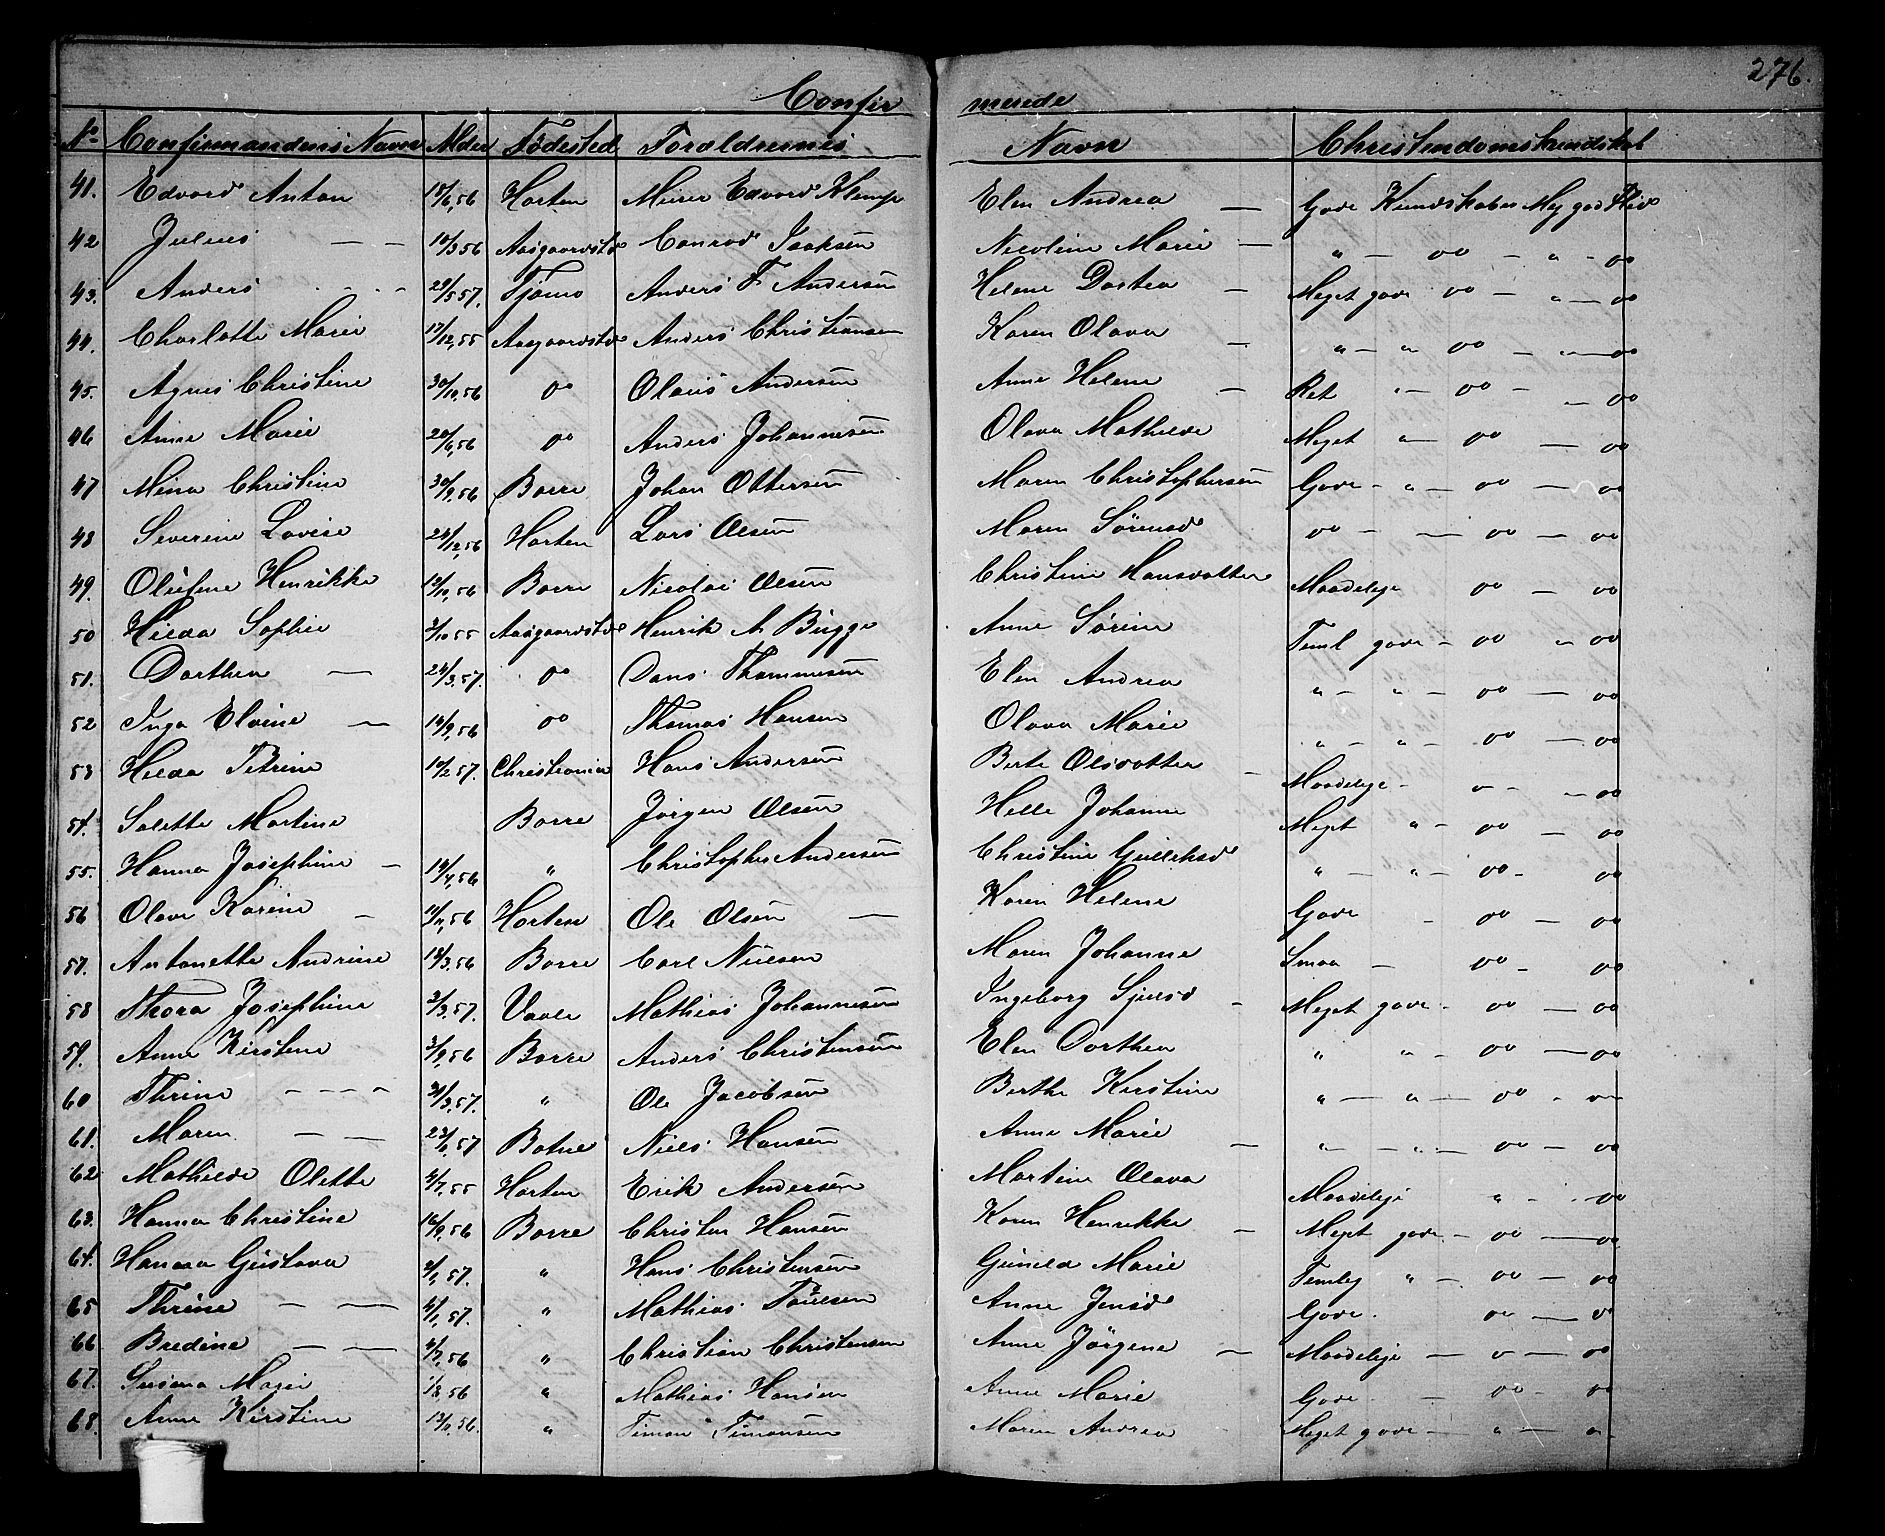 276.
Confirmerede
No Confirmandens Navn Alder Födested Forældrenes Navn Christendomskundskab
41. Edvard Anton 18/6,56 Horten Murer Edvard Klemp Elen Andrea — Gode Kundskaber Meg god Flid
42 Julius — — 10/3 56 Aasgaardstd Conrad Isaksen Nicoline Marie — " — do — " - do
43. Anders - - - 29/5 57. Tjømø Anders F Andersen Helene Dortea — Meget gode do — " — do
44. Charlotte Marie 17/12,55 Aasgaardstd Anders Christiansen Karen Olava — " — " do — " — do
45. Agnes Christine 30/10,56 do Olaus Andersen Anne Helene — Ret " — do — — do
46 Anne Marie 20/6,56 do Anders Johannesen Olava Mathilde Meget " — do — do
47 Mina Christine 30/9,56 Borre Johan Ottersen Maren Christophersen Gode - " — do — do
48 Severine Lovise 24/12,56 Horten Lars Olsen Maren Sörensd do — — do — do
49. Oliefine Henrikke 12/10,56 Borre Nicolai Olsen Christine Hansdatter Maadelige do — do
50 Hilda Sophie 3/10 55 Aasgaardstd Henrik A Bugge Anne Sörine Teml gode — do " do
51. Dorthea — 24/3.57. do Dans Thommesen Elen Andrea " — " — do — do
52 Inga Elvine — 14/9,56 do Thomas Hansen Olava Marie " — " — do — do
53 Hilda Petrine 10/2 57. Christiania Hans Andersen Berte Olsdatter — Maadelige - do - — do
54. Salette Martine Borre Jörgen Olsen Helle Johanne Meget " — do — do
55. Hanna Josephine — 14/4,56 " Christopher Andersen Christine Gulliksd " — " — do - do
56 Olava Karine — 10/11,56 Horten Ole Olsen — Karen Helene Gode - do — do
57. Antonette Andrine 12/3,56 Borre Carl Nielsen Maren Johanne Smaa — do - do
58 Thora Josephine 2/3,57. Vaale Mathias Johannesen Ingeborg Sjulsd — Meget gode - do — do
59. Anne Kirstine 3/9,56 Borre Anders Christensen Elen Dorthea " " — do — do
60 Thrine - - - - 31/3,57. " Ole Jacobsen Berthe Kirstine " — " — do - do
61. Maren — — 23/6,57 Botne Niels Hansen Anne Marie — " — " — do — do
62 Mathilde Olette 4/7,55 Horten Erik Andersen Martine Olava Maadelige " - - do
63. Hanna Christine 16/9,56 Borre Christen Hansen Karen Henrikke — Meget gode - do — do
64. Hanna Gustava 2/1,57. " Hans Christensen Gunild Marie Temlig " — do — do
65 Thrine — — 4/1,57. " Mathias Paulsen Anne Jensd Gode. do — do
66 Bredine — — 4/7,56 " Christian Christensen Anne Jörgene — Maadelige — do — do
67. Susana Marie 1/8,56 " Mathias Hansen Anne Marie Gode - do - do
68. Anne Kirstine 13/2,56. " Timan Timansen Maren Andrea Meget gode — " — "